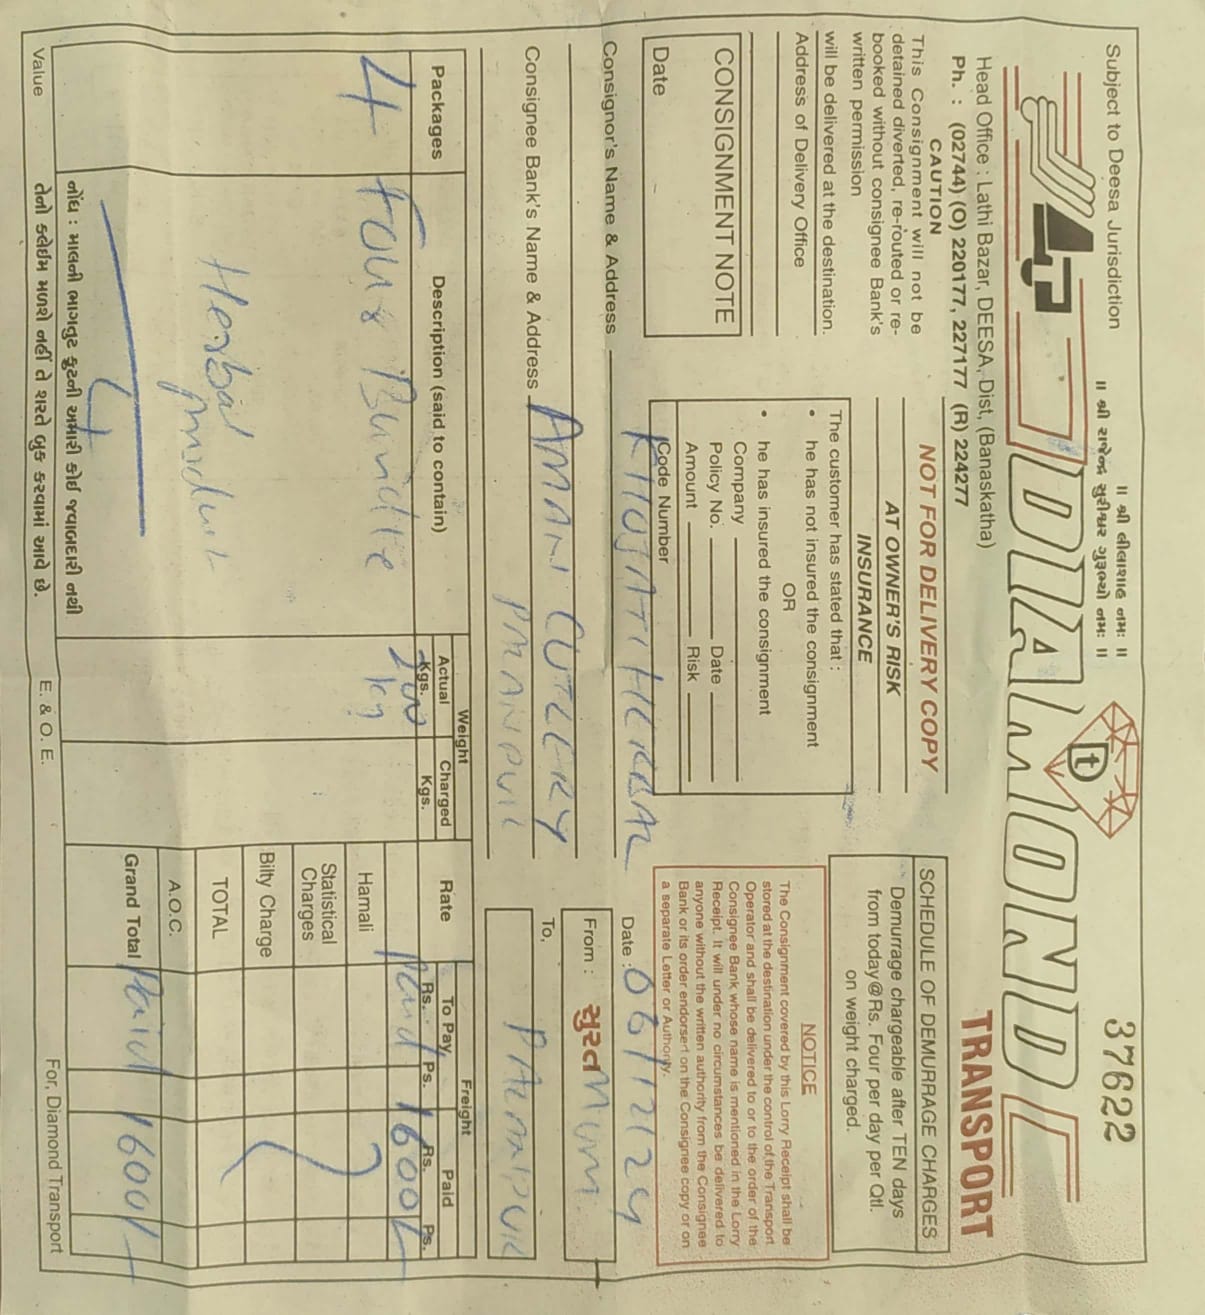 Subject to Deesa Jurisdiction
॥ શ્રી લીલાશાહ નમઃ ॥
॥ શ્રી રાજેન્દ્ર સુરીશ્વર ગુરૂભ્યો નમઃ ॥
37622
DIAMOND
TRANSPORT
Head Office : Lathi Bazar, DEESA, Dist, (Banaskatha)
Ph. : (02744) (O) 220177, 227177 (R) 224277
CAUTION
This Consignment will not be
detained diverted, re-routed or re-
booked without consignee Bank's
written permission
will be delivered at the destination.
Address of Delivery Office
CONSIGNMENT NOTE
Date
NOT FOR DELIVERY COPY
AT OWNER'S RISK
INSURANCE
The customer has stated that :
• he has not insured the consignment
OR
• he has insured the consignment
Company
Policy No. Date
Amount Risk
Code Number
SCHEDULE OF DEMURRAGE CHARGES
Demurrage chargeable after TEN days
from today@Rs. Four per day per Qtl.
on weight charged.
NOTICE
The Consignment covered by this Lorry Receipt shall be
stored at the destination under the control of the Transport
Operator and shall be delivered to or to the order of the
Consignee Bank whose name is mentioned in the Lorry
Receipt. It will under no circumstances be delivered to
anyone without the written authority from the Consignee
Bank or its order endorsert on the Consignee copy or on
a separate Letter or Authority.
Consignor's Name & Address KHUSATI HERBAL
Date : 06/12/24
Consignee Bank's Name & Address AMAN CUTLERY
From : સુરત Mum.
To,
Packages
Description (said to contain)
Weight
Actual Kgs.
Charged Kgs.
Rate
Freight
To Pay Rs. Ps.
Paid Rs. Ps.
4 Four Bundle
kg
Paid 1600/-
Hamali
Herbal
Product
Statistical Charges
Bilty Charge
TOTAL
4
A.O.C.
Grand Total Paid 1600/-
નોંધ : માલની ભાગતુટ ફુટની અમારી કોઈ જવાબદારી નથી
તેનો કલેઈમ મળશે નહીં તે શરતે બુક કરવામાં આવે છે.
Value
E. & O. E.
For, Diamond Transport